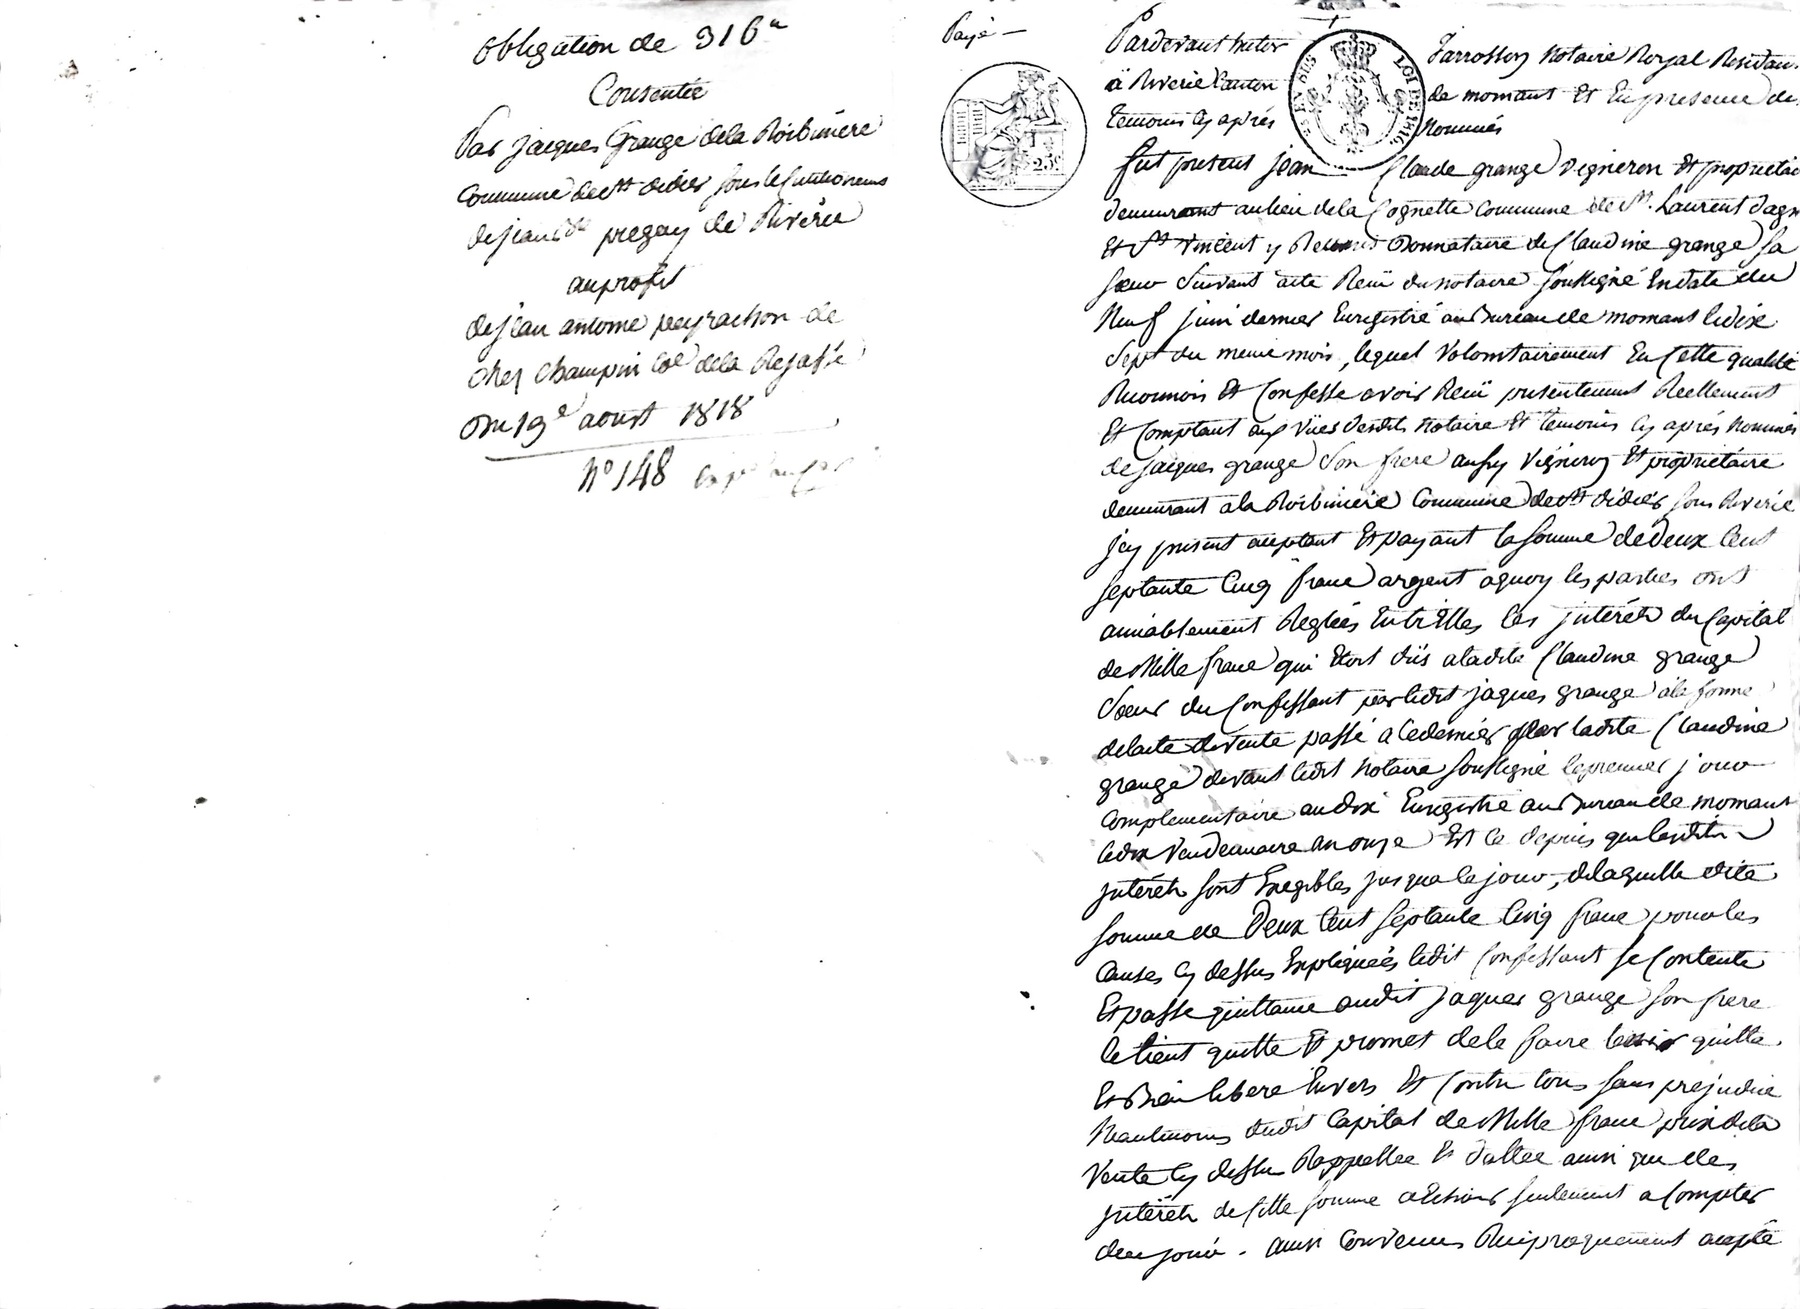 obligation de 316 ₶
Consentie
Par jacques Grange dela Roibiniere
Commune de st didier sous le Cautionnems
de jean pregay de Riverie
au profit
de jean antoine peyrachon de
chez Champin Cne dela Rajasse
Du 19e aoust 1818
N° 148
Payé —
Pardevant Tarrosson Notaire Royal Residan
à Riverie Canton de mornant Et En presence de
temoins Cy aprés Nommés
fut present jean Claude grange Vigneron Et proprietai
demeurant au lieu dela Cognette Commune de St. Laurent dagn
Et St Vincent y Donnataire de Claudine grange Sa
Sœur Suivant acte Reçu du notaire Soussigné En date du
Neuf juin dernier Enregistré au Bureau de mornant le dix
Sept du meme mois, lequel Volontairement En Cette qualité
Reconnois Et Confesse avoir Reçu presentement Reellement
Et Comptant aux Vües desdits Notaire Et temoins Cy aprés Nommés
de jacques grange Son frere aussy Vigneron Et proprietaire
demeurant a la Roibiniere Commune de st didier sous Riverie
jcy present acceptant Et payant la Somme de deux Cent
septante Cinq franc argent a quoy les parties ont
amiablement Reglées Entr'Elles les jnterêts du Capital
de Mille franc qui Etoit dûs a ladite Claudine grange
Sœur du Confessant par ledit jaques grange à la forme
de lacte de vente passé a Ce dernier par ladite Claudine
grange devant ledit Notaire Soussigné le premier jour
Complementaire an dix Enregistré au Bureau de mornant
le dix Vendemiaire an onze Et Ce depuis que lesdits
jnterêts sont Exegibles jusqua Ce jour, de laquelle dite
Somme de Deux Cent Septante Cinq franc pour les
Causes Cy dessus Expliquées ledit Confessant Se Contente
Et passe quittance audit jaques grange Son frere
le tient quitte Et promet de le faire tenir quitte
Et Bien libere Envers Et Contre tous sans prejudice
Neanlmoins dudit Capital de Mille franc prix de la
Vente Cy dessus Rappellee Et dattee ainsi que des
jnterêts de Cette Somme a Echoir seulement a Compter
de ce jour. ainsi Convenus Reciproquement accepté